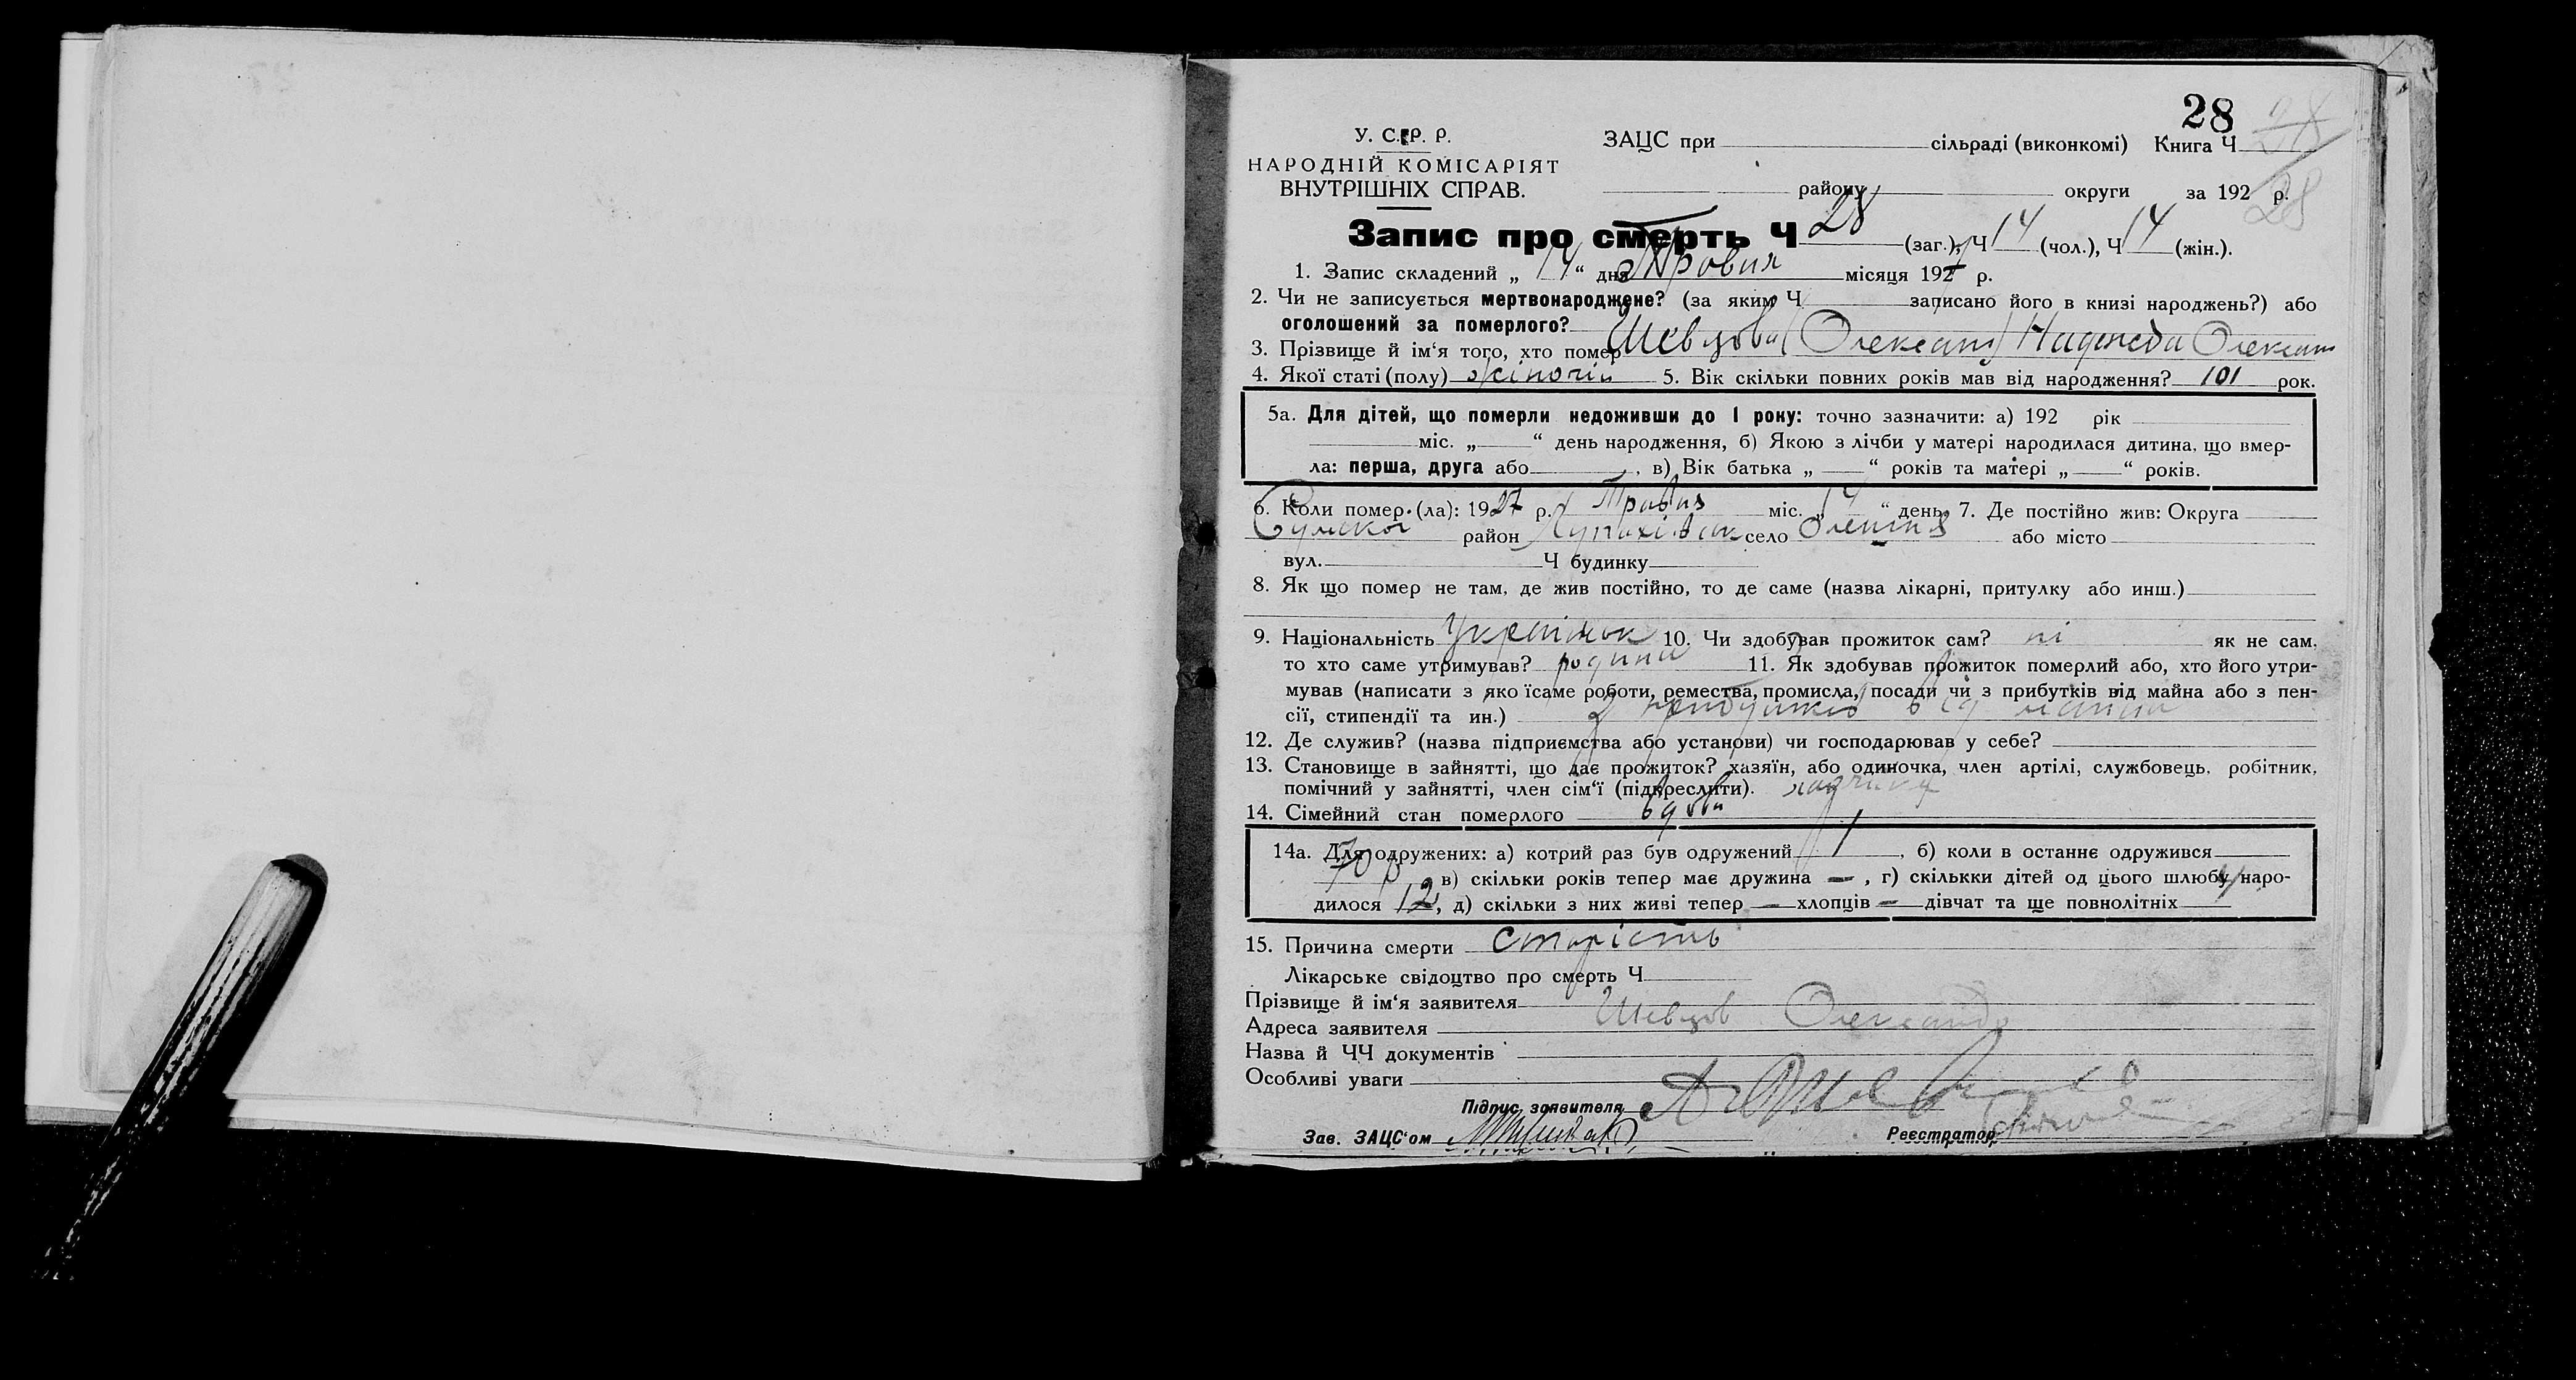 28
28
У. С.Р. Р. ЗАЦС при сільраді (виконкомі) Книга Ч
НАРОДНІЙ КОМІСАРІЯТ
ВНУТРІШНІХ СПРАВ. району округи за 192 р.
Запис про смерть Ч 28 (заг.), Ч 14 (чол.), Ч 14 (жін.).
1. Запис складений „ 14 “ дня Травня місяця 1927 р.
2. Чи не записується мертвонароджене? (за яким Ч записано його в книзі народжень?) або
оголошений за померлого?
3. Прізвище й ім‘я того, хто помер Шевцова (Олександ) Надежда Олексан
4. Якої статі (полу) жіночій 5. Вік скільки повних років мав від народження? 101 рок.
5а. Для дітей, що померли недоживши до 1 року: точно зазначити: а) 192 рік
міс. „ “ день народження, б) Якою з лічби у матері народилася дитина, що вмер-
ла: перша, друга або , в) Вік батька „ “ років та матері „ “ років.
6. Коли помер (ла): 1927 р. Травня міс. „ 14 “ день. 7. Де постійно жив: Округа
Сумської район село або місто
вул. Ч будинку
8. Як що помер не там, де жив постійно, то де саме (назва лікарні, притулку або инш.)
9. Національність Українок 10. Чи здобував прожиток сам? ні як не сам,
то хто саме утримував? родина 11. Як здобував прожиток померлий або, хто його утри-
мував (написати з яко їсаме роботи, ремества, промисла, посади чи з прибутків від майна або з пен-
сії, стипендії та ин.) з прибутків від майна
12. Де служив? (назва підприємства або установи) чи господарював у себе?
13. Становище в зайнятті, що дає прожиток? хазяїн, або одиночка, член артілі, службовець, робітник,
помічний у зайнятті, член сім‘ї (підкреслити).
14. Сімейний стан померлого вдова
14а. Для одружених: а) котрий раз був одружений 1 , б) коли в останнє одружився
70 р в) скільки років тепер має дружина — , г) скількки дітей од цього шлюбу наро-
дилося 12, д) скільки з них живі тепер — хлопців — дівчат та ще повнолітніх 4
15. Причина смерти старість
Лікарське свідоцтво про смерть Ч
Прізвище й ім‘я заявителя Шевцов Олександ
Адреса заявителя
Назва й ЧЧ документів
Особливі уваги
Підпис заявителя
Зав. ЗАЦС‘ом Реєстратор